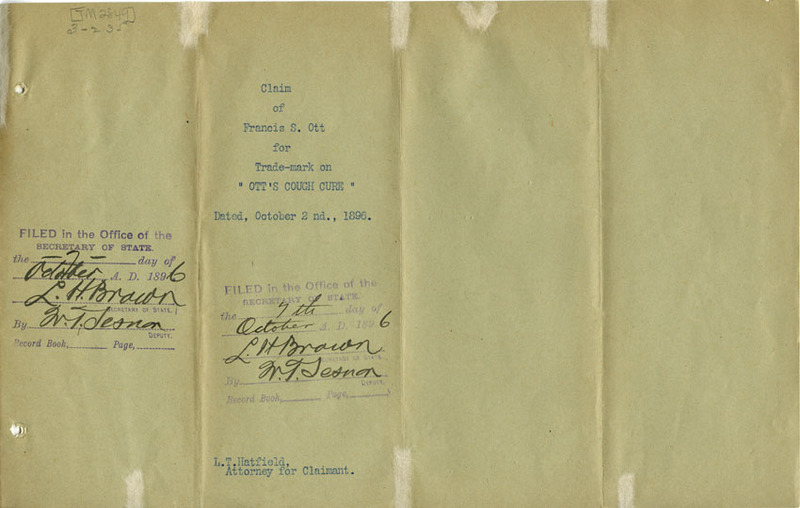 [TM 2849]
Claim
of
Francis S. Ott
for
Trade-mark on
" OTT'S COUGH CURE "
Dated, October 2 nd., 1896.
FILED in the Office of the
SECRETARY OF STATE.
the 7th day of
October A. D. 1896
L. H. Brown
SECRETARY OF STATE.
By W. T. Sesnon
DEPUTY.
Record Book, Page,
FILED in the Office of the
SECRETARY OF STATE.
the 7th day of
October A. D. 1896
L. H. Brown
SECRETARY OF STATE.
By W. T. Sesnon
DEPUTY.
Record Book, Page,
L.T.Hatfield,
Attorney for Claimant.